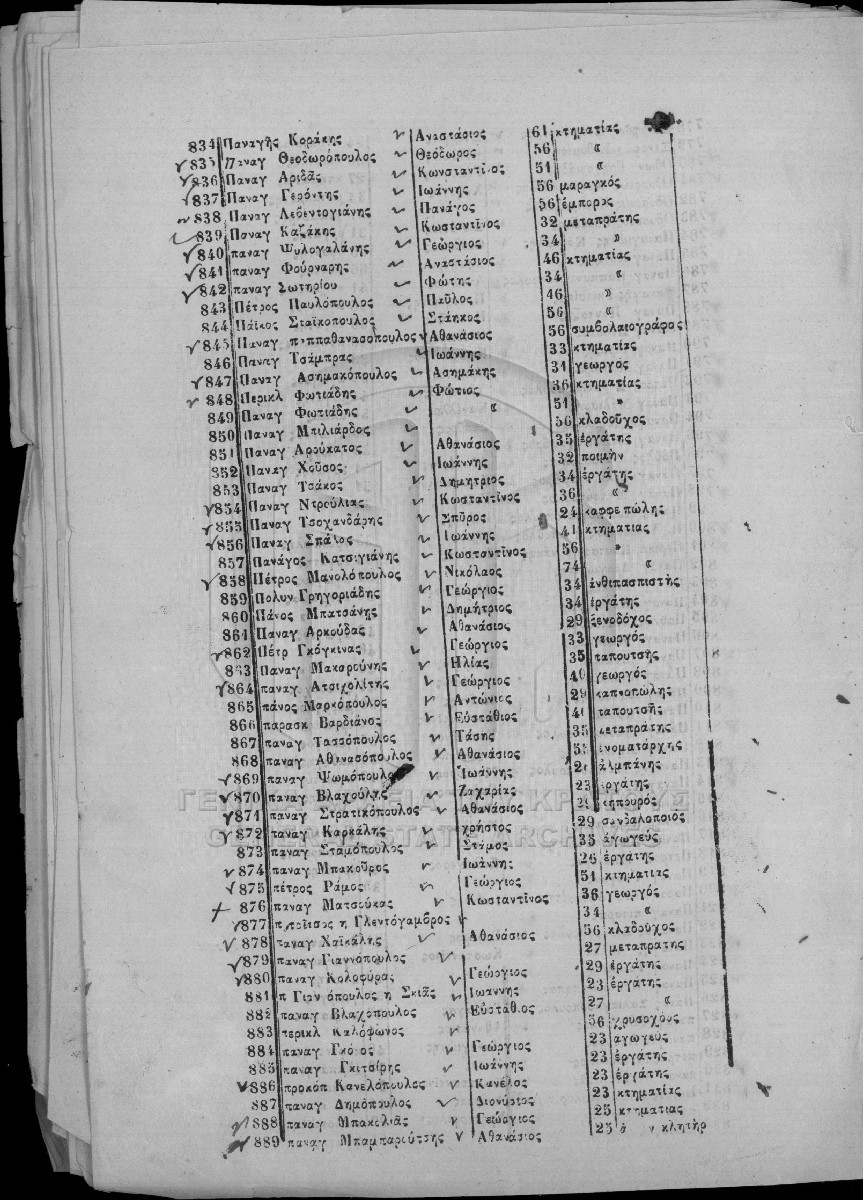 834 Παναγῆς Κοράκης Αναστάσιος 61 κτηματίας
835 Παναγ Θεοδωρόπουλος Θεόδωρος 56 «
836 Παναγ Αριδᾶς Κωνσταντῖνος 51 «
837 Παναγ Γερόντης Ιωάννης 56 μαραγκός
838 Παναγ Λεβεντογιάνης Πανάγος 56 ἔμπορος
839 Παναγ Καζάκης Κωσταντῖνος 32 μεταπράτης
840 παναγ Ψυλογαλάνης Γεώργιος 34 »
841 παναγ Φούρναρης Αναστάσιος 46 κτηματίας
842 παναγ Σωτηρίου Φώτης 34 «
843 Πέτρος Παυλόπουλος Παῦλος 46 »
844 Πάϊκος Σταϊκοπουλος Στάηκος 56 «
845 Παναγ παππαθανασοπουλος Αθανάσιος 56 συμβολαιογράφος
846 Παναγ Τσάμπρας Ιωάννης 33 κτηματίας
847 Παναγ Ασημακόπουλος Ασημάκης 31 γεωργος
848 Περικλ Φωτιάδης Φώτιος 36 κτηματίας
849 Παναγ Φωτιάδης « 51 »
850 Παναγ Μπιλιάρδος 56 κλαδοῦχος
851 Παναγ Αρούκατος Αθανάσιος 35 ἐργάτης
852 Παναγ Χοῦσος Ιωάννης 32 ποιμὴν
853 Παναγ Τσάκος Δημήτριος 34 ἐργάτης
854 Παναγ Ντρούλιας Κωσταντῖνος 36 «
855 Παναγ Τσοχανδάρης Σπῦρος 24 καφφεπώλης
856 Παναγ Σπάλος Ιωάννης 41 κτηματιας
857 Πανάγος Κατσιγιάνης Κωσταντῖνος 56 »
858 Πέτρος Μανολόπουλος Νικόλαος 74 «
859 Πολυν Γρηγοριάδης Γεώργιος 34 ἀνθιπασπιστὴς
860 Πάνος Μπατσάνης Δημήτριος 34 ἐργάτης
861 Παναγ Αρκούδας Αθανάσιος 29 ξενοδόχος
862 Πέτρ Γκόγκινας Γεώργιος 33 γεωργός
863 Παναγ Μακρρούνης Ηλίας 35 παπουτσῆς
864 παναγ Ατσιχολίτης Γεώργιος 40 γεωργός
865 πάνος Μαρκόπουλος Αντώνιος 29 καπνοπώλης
866 παρασκ Βαρδιάνος Εὐστάθιος 40 παπουτσῆς
867 παναγ Τασσόπουλος Τάσης 35 μεταπράτης
868 παναγ Αθανασόπουλος Αθανάσιος 55 ἐνοματάρχης
869 παναγ Ψωμόπουλος Ἰωάννης ἀλμπάνης
870 παναγ Βλαχούλης Ζαχαρίας 23 ἐργάτης
871 παναγ Στρατικόπουλος Αθανάσιος κηπουρὸς
872 παναγ Καρκάλης χρῆστος 29 σανδαλοποιὸς
873 παναγ Σταμόπουλος Στάμος 35 ἀγωγεὺς
874 παναγ Μπακοῦρος Ιωάννης 26 ἐργάτης
875 πέτρος Ράμος Γεώργιος 51 κτηματιας
876 παναγ Ματσούκας Κωσταντῖνος 36 γεωργός
877 η Γλεντόγαμβρος 34 «
878 παναγ Χαϊκάλης Αθανάσιος 56 κλαδοῦχος
879 παναγ Γιαννόπουλος 27 μεταπρατης
880 παναγ Κολοφύρας Γεώργιος 29 ἐργάτης
881 π Γιαννόπουλος η Σκιᾶς Ιωαννης 23 ἐργατης
882 παναγ Βλαχόπουλος Εὐστάθιος 27 «
883 περικλ Καλόφωνος 56 χρυσοχόος
884 παναγ Γκότος Γεώργιος 23 αγωγεύς
885 παναγ Γκιτσίρης Ἰωάννης 23 ἐργάτης
886 προκόπ Κανελόπουλος Κανέλος 23 ἐργάτης
887 παναγ Δημόπουλος Διονύσιος 23 κτηματίας
888 παναγ Μπακολιᾶς Γεώργιος 25 κτηματιας
889 παναγ Μπαμπαρούτσης Αθανάσιος 25 κλητὴρ